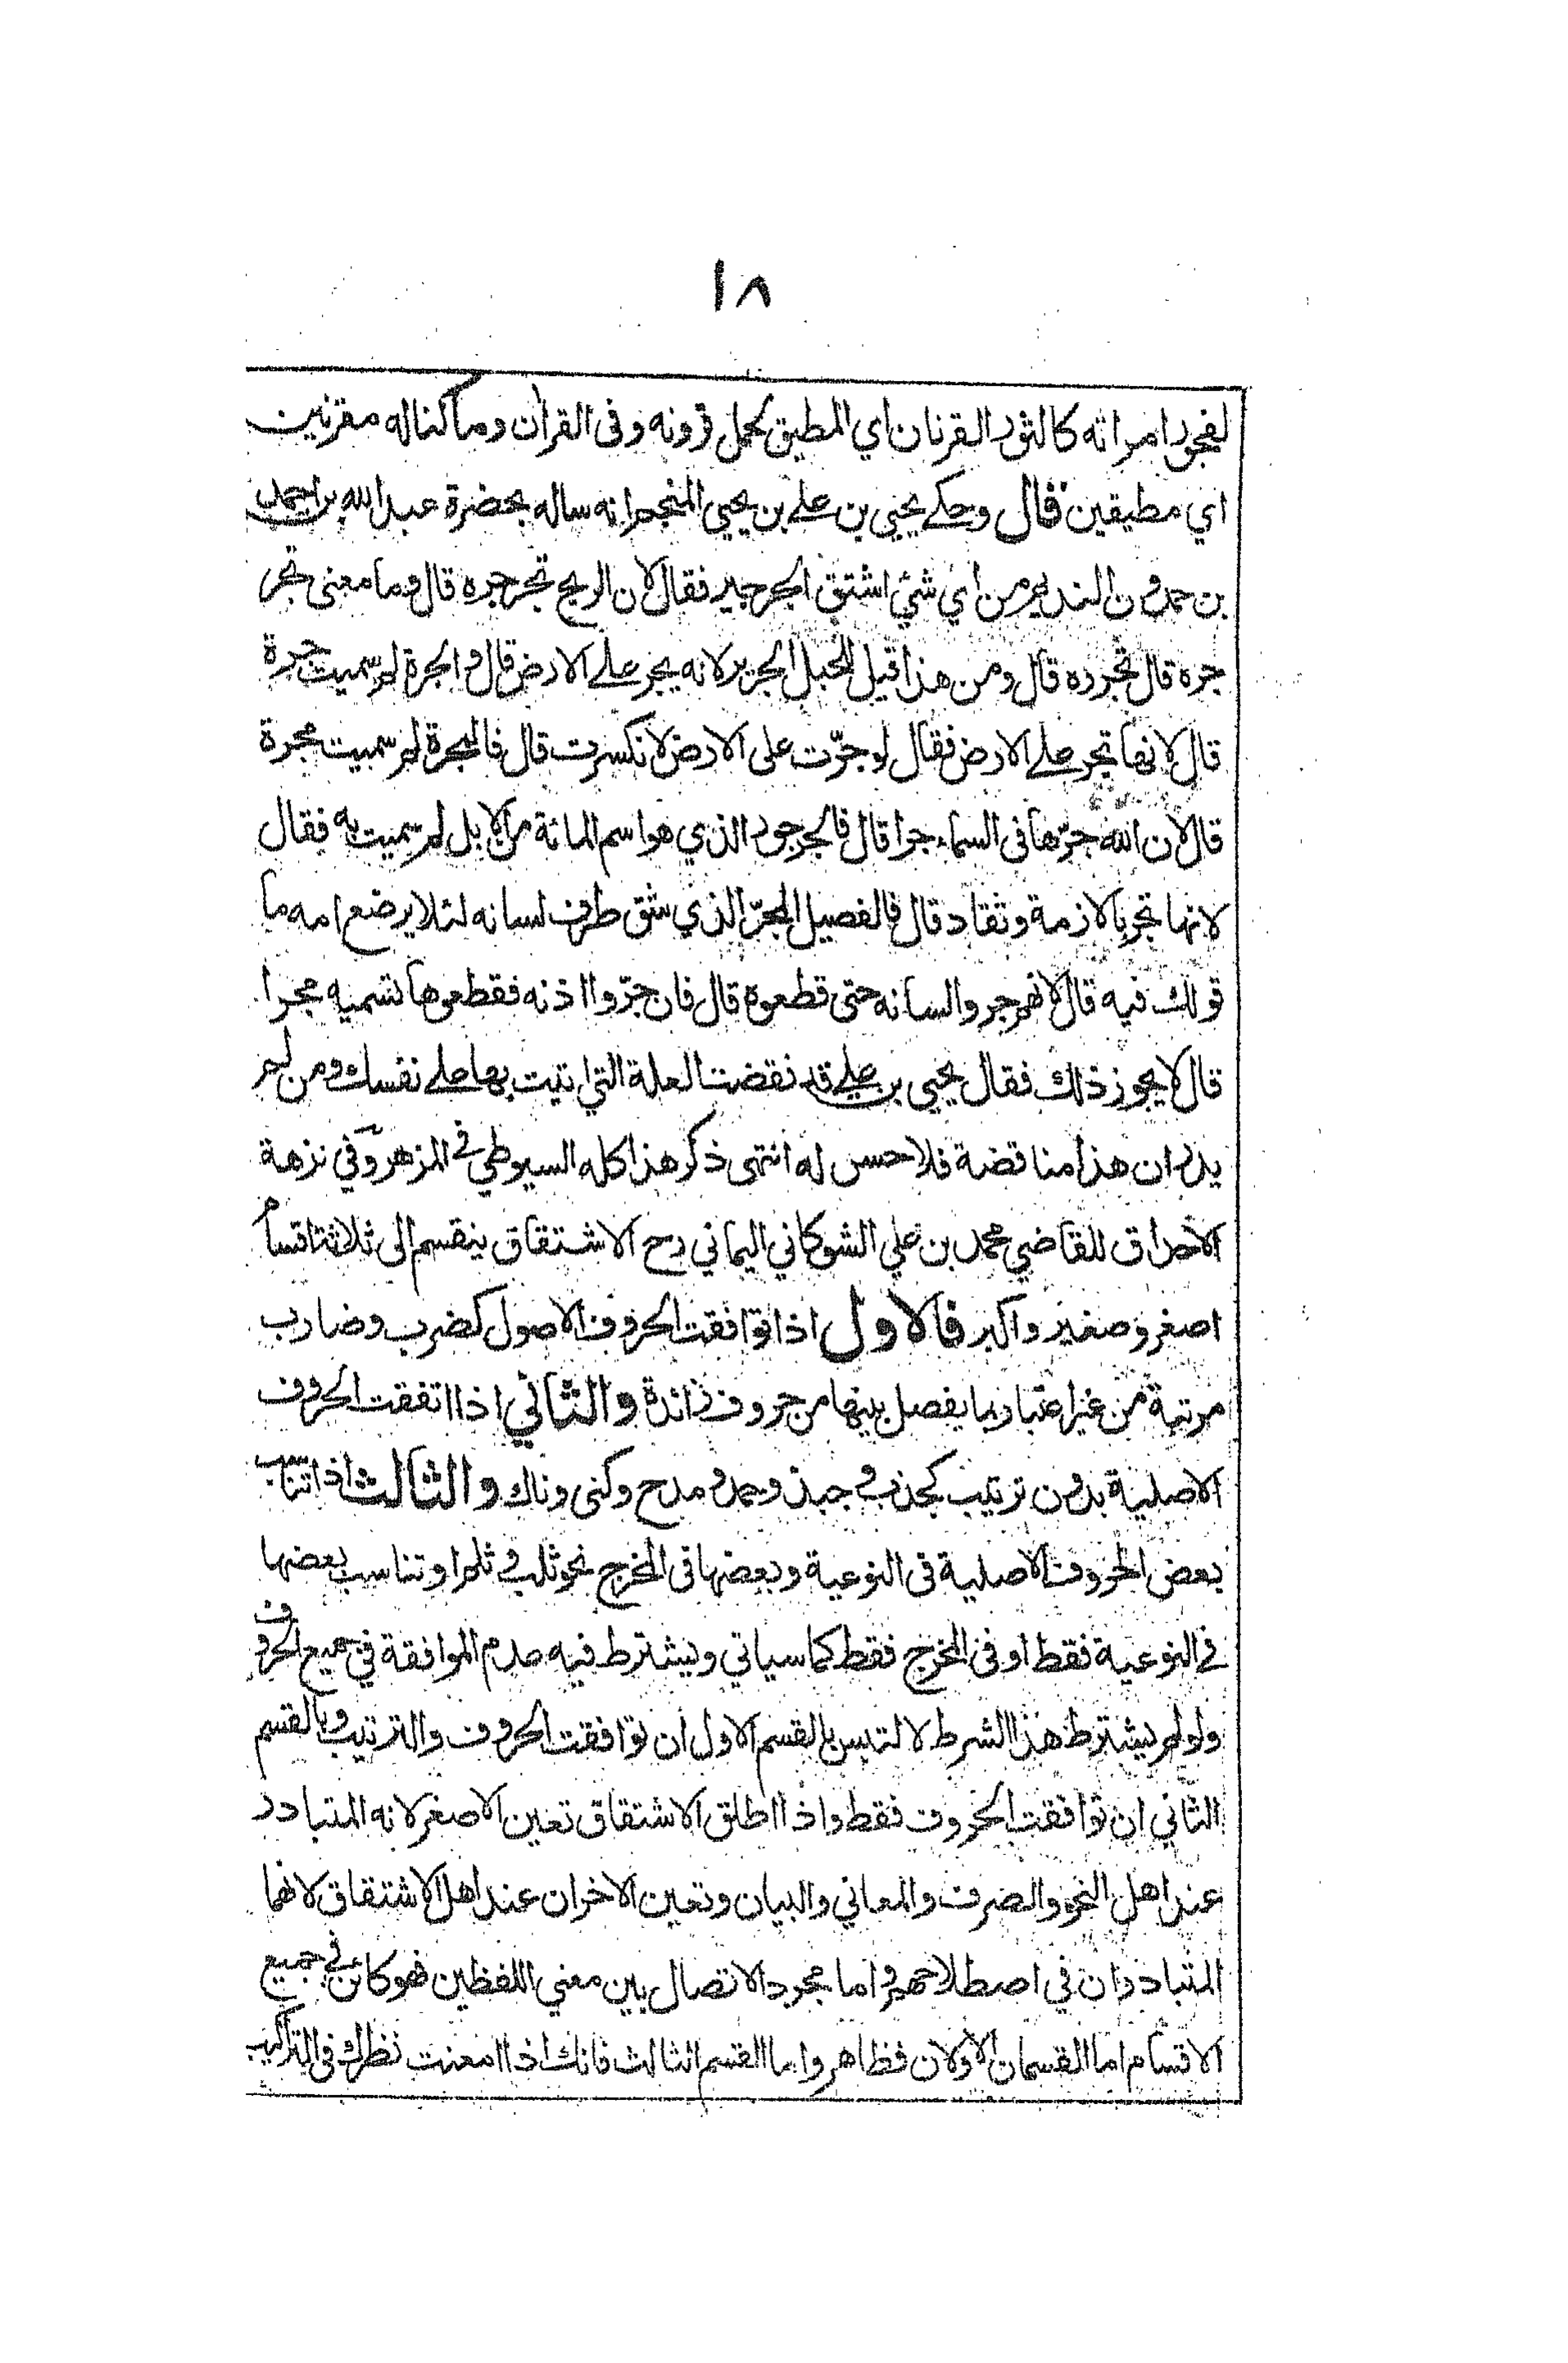 ١٨
لفجور امراته كالثور القرنان اي المطيق لحمل قرونه وفى القران وما كنا له مقرنين
اي مطيقين قال وحكے يحيى بن علے بن يحيى المنجم انه ساله بحضرة عبد الله بن احمد
بن حمدون النديم من اي شئ اشتق الجرجير فقال لان الريح تجرجره قال وما معنى تجر
جره قال تجرده قال ومن هذا قيل للحبل الجرير لانه يجر علے الارض قال والجرة لم سميت جرة
قال لانها تجر علے الارض فقال لو جرّت على الارض لانكسرت قال فالمجرة لم سميت مجرة
قال لان الله جرّها فى السماء جرا قال فالجرجور الذي هو اسم المائة من الابل لم سميت به فقال
لانها تجر بالازمة وتقاد قال فالفصيل المجرّ الذي شق طرف لسانه لئلا يرضع امه ما
قولك فيه قال لانهم جروا لسانه حتى قطعوه قال فان جرّوا اذنه فقطعوها تسميه مجرا
قال لا يجوز ذلك فقال يحيى بن علے قد نقضت العلة التي اتيت بها علے نفسك ومن لم
يدر ان هذا مناقضة فلا حس له انتهى ذكر هذا كله السيوطي فے المزهر وفي نزهة
الاحداق للقاضي محمد بن علي الشوكاني اليماني رح الاشتقاق ينقسم الى ثلاثة اقسام
اصغر وصغير واكبر فالاول اذا توافقت الحروف الاصول كضرب وضارب
مرتبة من غير اعتبار بما يفصل بينها من حروف زائدة والثاني اذا اتفقت الحروف
الاصلية بدون ترتيب كجذب وجبذ وحمد ومدح وكنى وناك والثالث اذا تناسب
بعض الحروف الاصلية فى النوعية وبعضها فى المخرج نحو ثلب وثلم او تناسب بعضها
فے النوعية فقط او فى المخرج فقط كما سياتي ويشترط فيه عدم الموافقة في جميع الحروف
ولو لم يشترط هذا الشرط لالتبس بالقسم الاول ان توافقت الحروف والترتيب وبالقسم
الثاني ان توافقت الحروف فقط واذا اطلق الاشتقاق تعين الاصغر لانه المتبادر
عند اهل النحو والصرف والمعاني والبيان وتعين الاخران عند اهل الاشتقاق لانهما
المتبادران في اصطلاحهم واما مجرد الاتصال بين معني اللفظين فهو كائن في جميع
الاقسام اما القسمان الاولان فظاهر واما القسم الثالث فانك اذا امعنت نظرك فى التراكيب